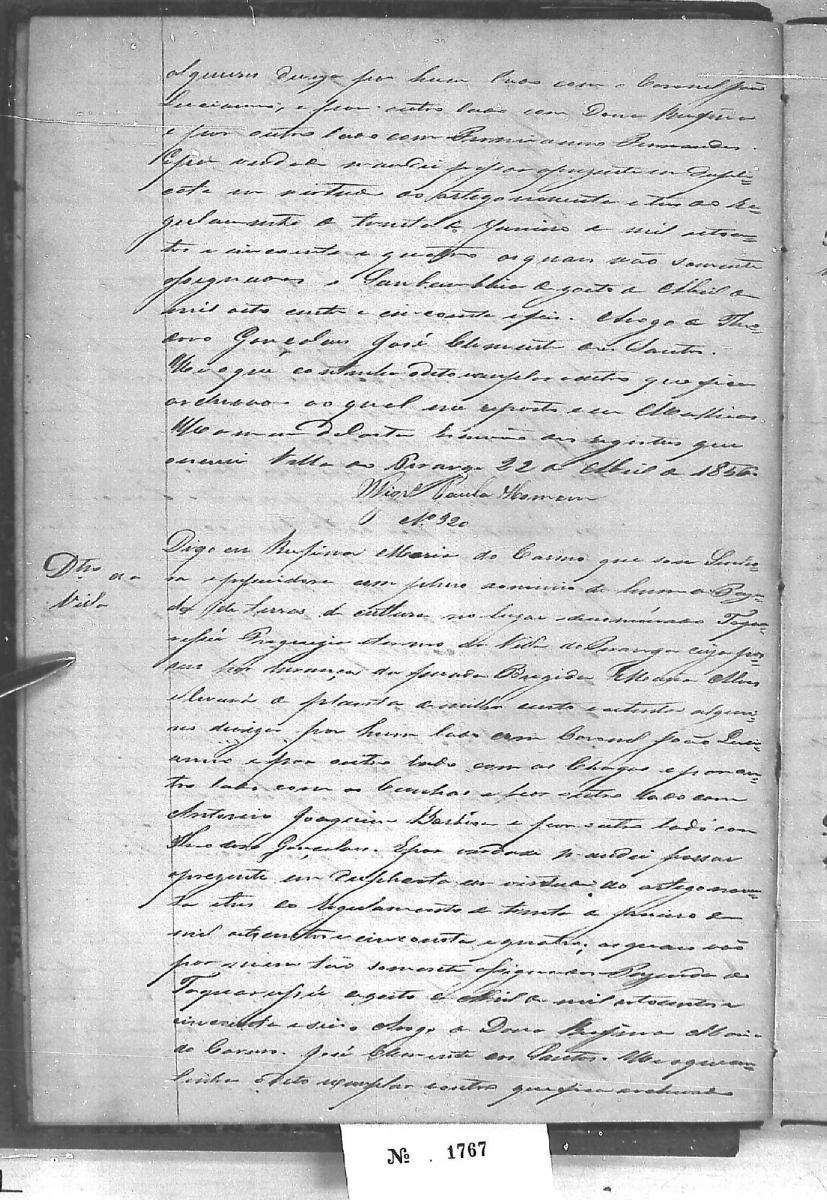 alqueires diviza por hum lado com o Coronel João
Luciano, e por outro lado com Dona Rufina
e por outro lado com Firmianno Fernandes.
E por verdade mandei passar o prezente em dupli-
cata em virtude do artigo noventa e tres do Re-
gulamento de trinta de Janeiro de mil oitocen-
tos e cincoenta e quatro os quais vão somente
assignados de Abril de
mil oito centos e cincoenta e seis. Arogo de The-
odoro Gonçalves José Clemente dos Santos.
He o que continha o dito exemplar e outro que fica
archivado ao qual me reporto e eu Mathias
Homem da Costa Escrivão dos registos que
escrevi Villa da Piranga 22 de Abril de 1856
Paula Homem
Nº 320
Dtro da
Villa
Digo eu Rufina Maria do Carmo que sou Senho-
ra e possuidora com pleno dominio de huma Fazen-
da de terras de cultura no lugar denominado Taqua-
russú Freguezia e termo da Villa da Piranga cuja pos-
sui por herança da finada Brigida Alves
e levará de planta de milho cento e oitenta alquei-
res diviza por hum lado com Coronel João Luci-
anno e por outro lado com os Chagas e por ou-
tro lado com os Cunhas e por outro lado com
Antonio Joaquim Barbosa e por outro lado com
Theodoro Gonçalves. E por verdade mandei passar
o prezente em duplicata em virtude do artigo noven-
ta e tres do regulamento de trinta de Janeiro de
mil oitocentos e cincoenta e quatro, os quais vão
por mim tão somente assignados Fazenda do
Taquarussú agosto de Abril de mil oitocentos e
cincoenta e seis Arogo de Dona Rufina Maria
do Carmo. José Clemente dos Santos. He o que con-
tinha o dito exemplar e outro que fica archivado
Nº 1767